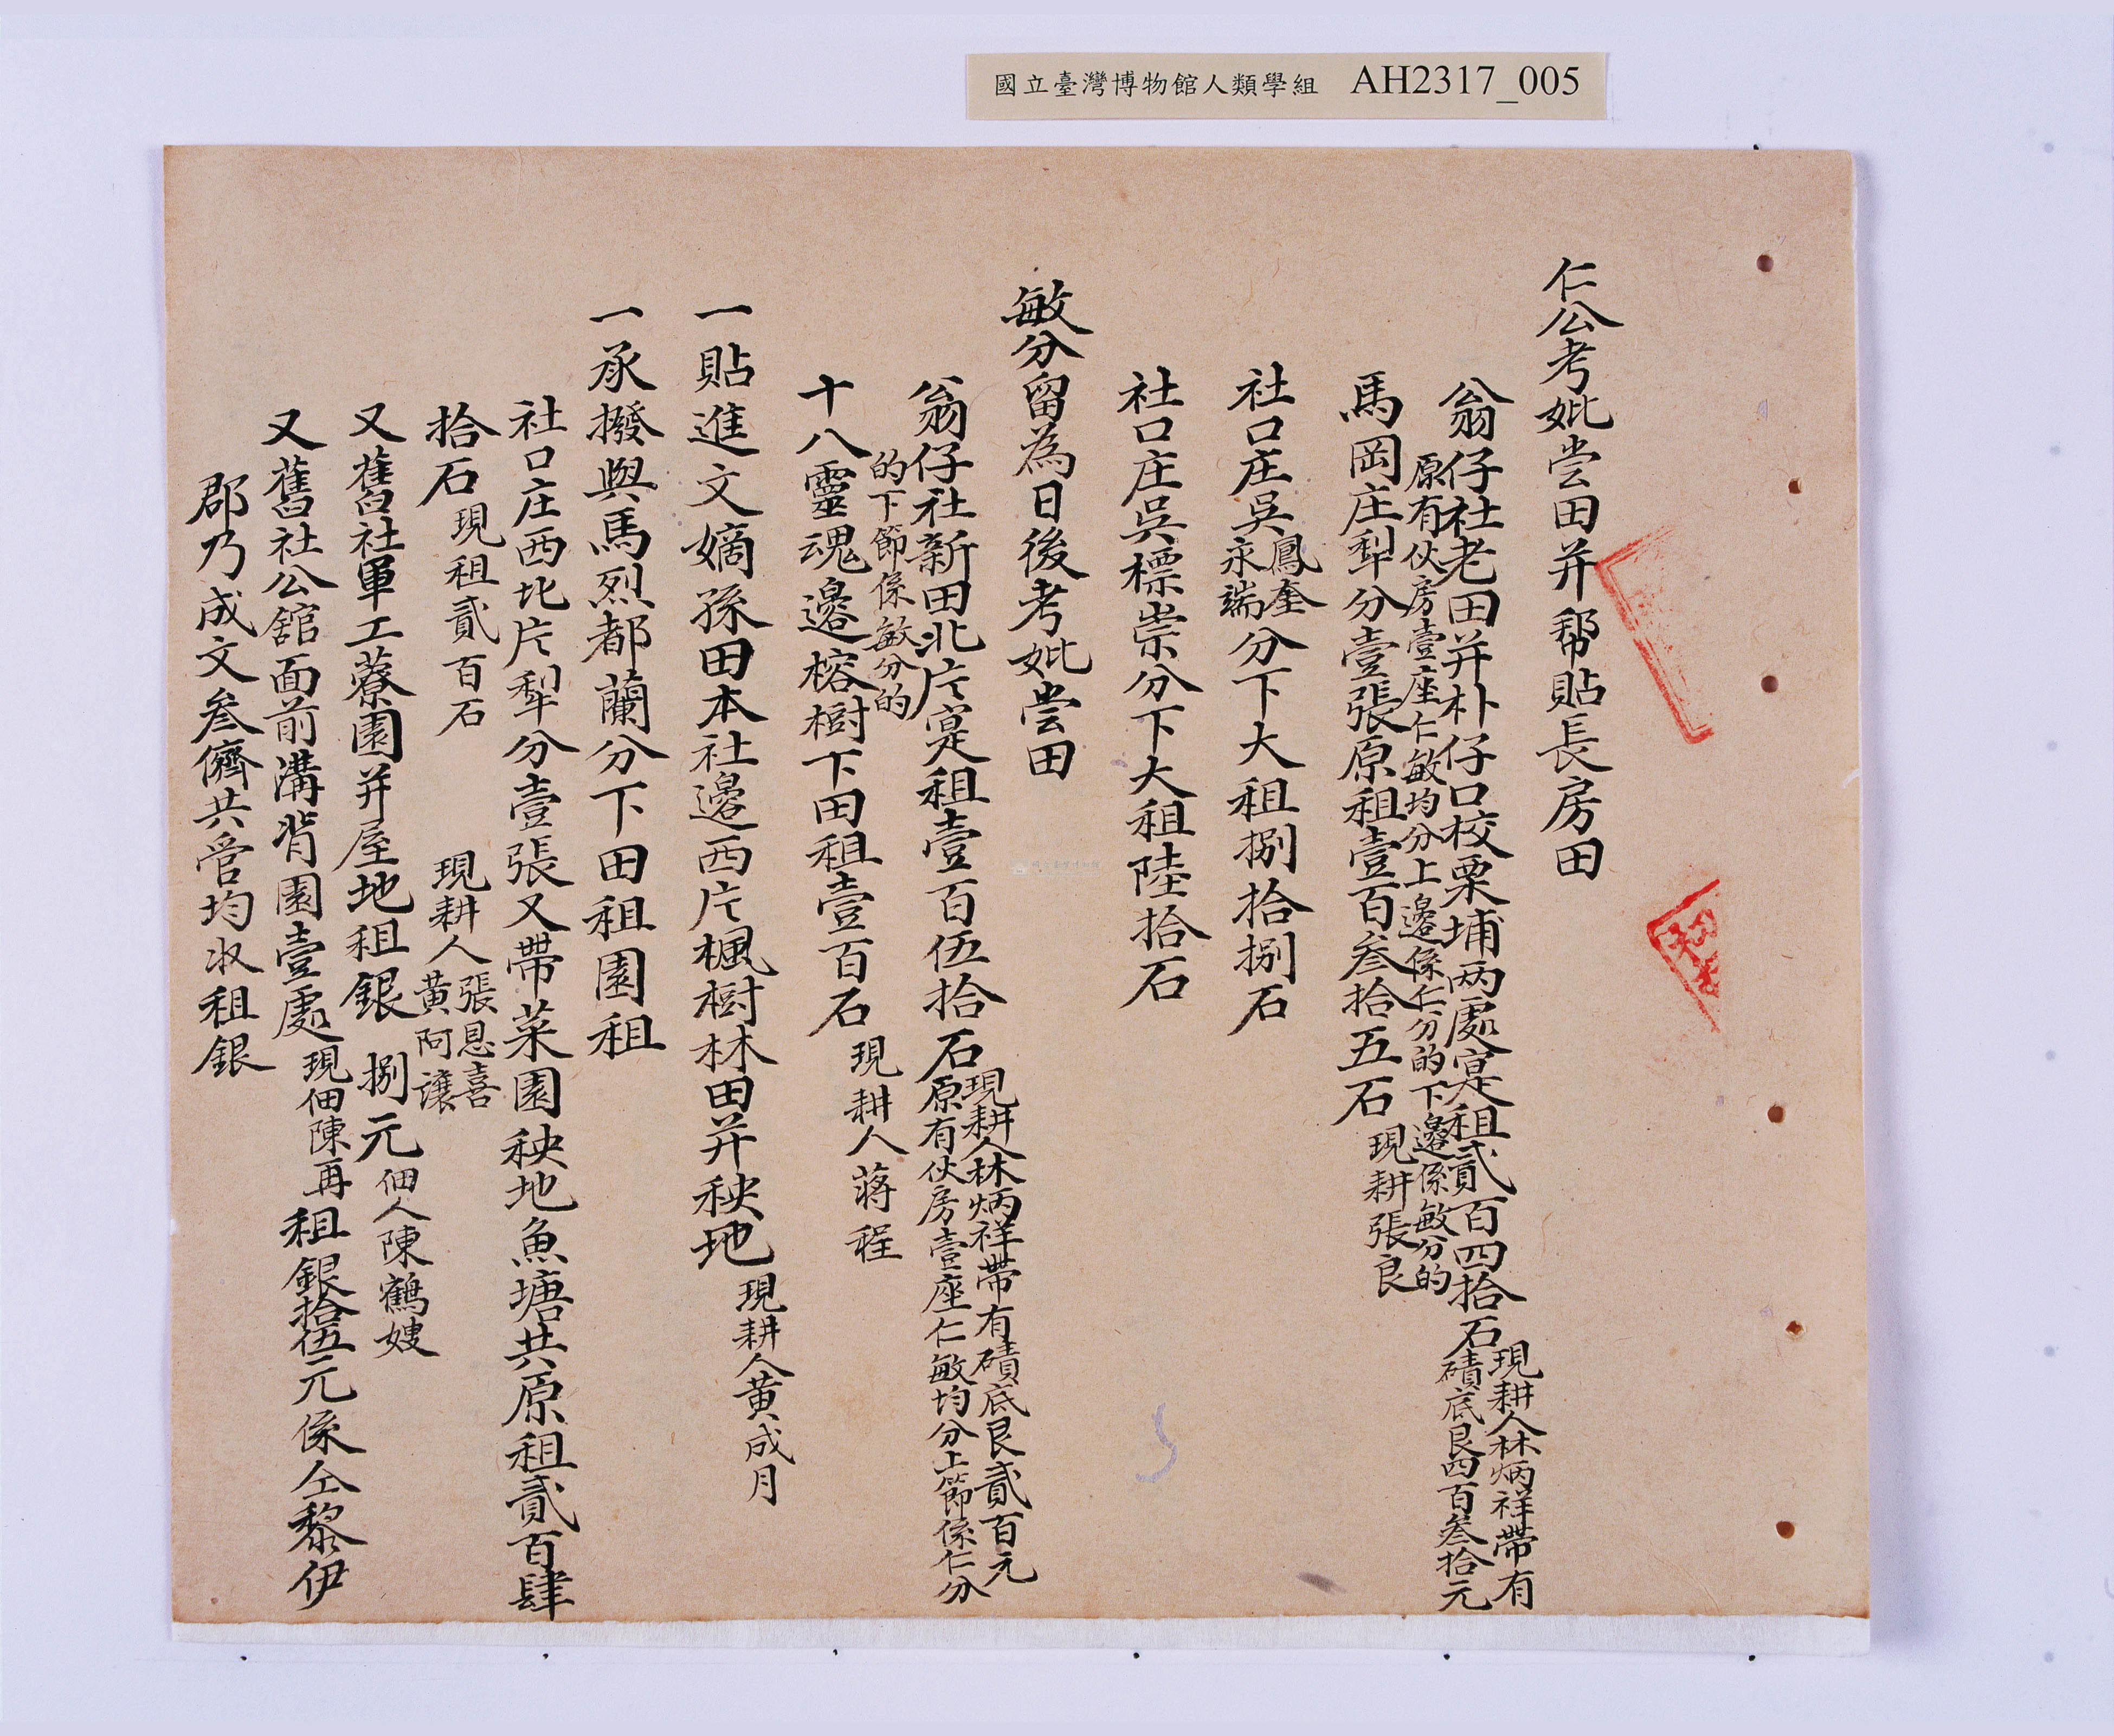 國立臺灣博物館人類學組 AH2317_005
仁公考妣尝田并帮貼長房田
翁仔社老田并朴仔口校栗埔两處寔租貳百四拾石
現耕人林炳祥帶有
磧底艮四百叁拾元
原有伙房壹座仁敏均分上邊係仁分的下邊係敏分的
馬岡庄犁分壹張原租壹百叁拾五石現耕張良
社口庄吳鳳奎永端分下大租捌拾捌石
社口庄吳標崇分下大租陸拾石
敏分留為日後考妣尝田
翁仔社新田北片寔租壹百伍拾石
現耕人林炳祥帶有磧底艮貳百元
原有伙房壹座仁敏均分上節係仁分
的下節係敏分的
十八靈魂邊榕樹下田租壹百石現耕人蔣程
一貼進文嫡孫田本社邊西片楓樹林田并秧地現耕人黄成月
一承撥與馬烈都蘭分下田租園租
社口庄西北片犁分壹張又帶菜園秧地魚塘共原租貳百肆
拾石現租貳百石 現耕人張恩喜黄阿讓
又舊社軍工藔園并屋地租銀捌元佃人陳鶴嫂
又舊社公舘面前溝背園壹處現佃陳再租銀拾伍元係仝黎伊
郡乃成文叁儕共管均收租銀